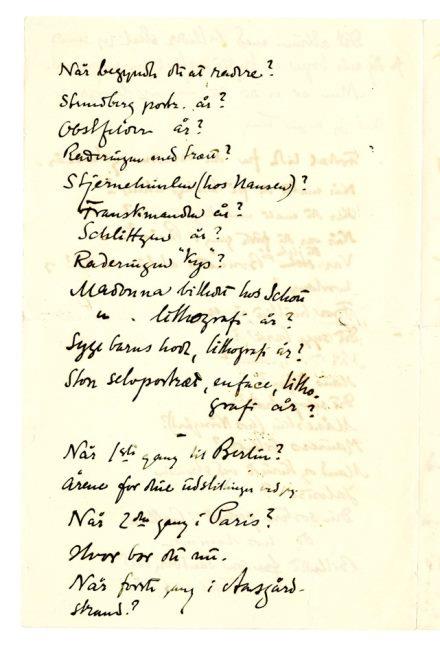 Når begyndte du at radere?
Strindberg portr. år?
år?
Raderingen med træet?
Stjernehimlen (hos Hansen)?
Franskmanden år?
Schlittgen år?
Raderingen "Kys"?
Madonna billedet hos Schou
" . lithografi år?
Syge barns hode, lithografi år?
Stort selvportræt, enface, litho-
grafi år?
Når 1ste gang til Berlin?
Årene for dine udstillinger
Når 2den gang i Paris?
Hvor bor du nu.
Når første gang i Aasgård-
strand?